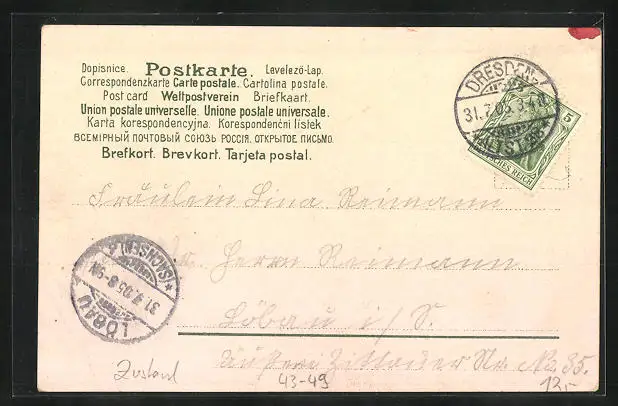 Dopisnice. Postkarte. Levelező-Lap.
Correspondenzkarte Carte postale. Cartolina postale.
Post card Weltpostverein Briefkaart.
Union postale universelle. Unione postale universale.
Karta korespondencyjna. Korespondenční lístek
ВСЕМІРНЫЙ ПОЧТОВЫЙ СОЮЗЪ РОССІЯ. ОТКРЫТОЕ ПИСЬМО.
Brefkort. Brevkort. Tarjeta postal.
DRESDEN-
31.7.05. 3-4 N.
ALTST.
5
DEUTSCHES REICH
Fräulein Lina Reimann
Herrn Reimann
Löbau i/S.
äußere Zittauer Nr. 35.
*(SACHSEN)
31.7.05. 8-9N
LÖBAU
Zustand
43-49
12,-